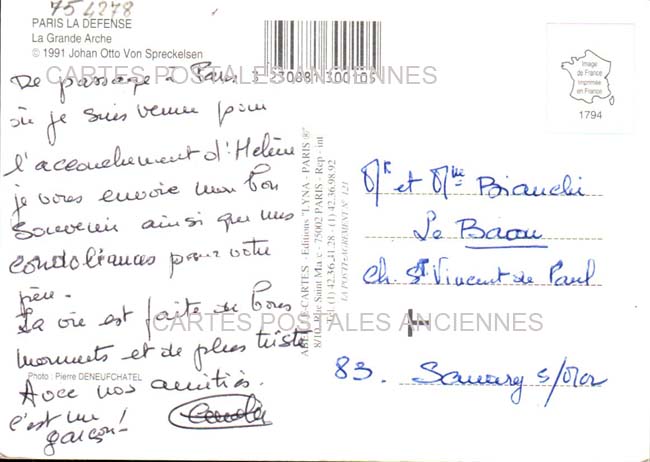 754278
PARIS LA DEFENSE
La Grande Arche
© 1991 Johan Otto Von Spreckelsen
De passage à Paris
où je suis venue pour
l'accouchement d'Hélène
je vous envoie mon bon
souvenir ainsi que mes
condoléances pour votre
père.
La vie est faite de bons
moments et de plus triste
Avec nos amitiés.
c'est un
garçon!
Photo : Pierre DENEUFCHATEL
CARTES POSTALES ANCIENNES
CARTES POSTALES ANCIENNES
3 230681 300105
Editions "LYNA - PARIS"®
8/10, Rue Saint Marc - 75002 PARIS - Rep - int
Tél. (1) 42.36.41.28 - (1) 42.36.98.92
LA POSTE AGREMENT N° 121
Image
de France
Imprimée
en France
1794
Mr et Mme Bianchi
Le Baou
Ch St Vincent de Paul
83. Sanary s/mer